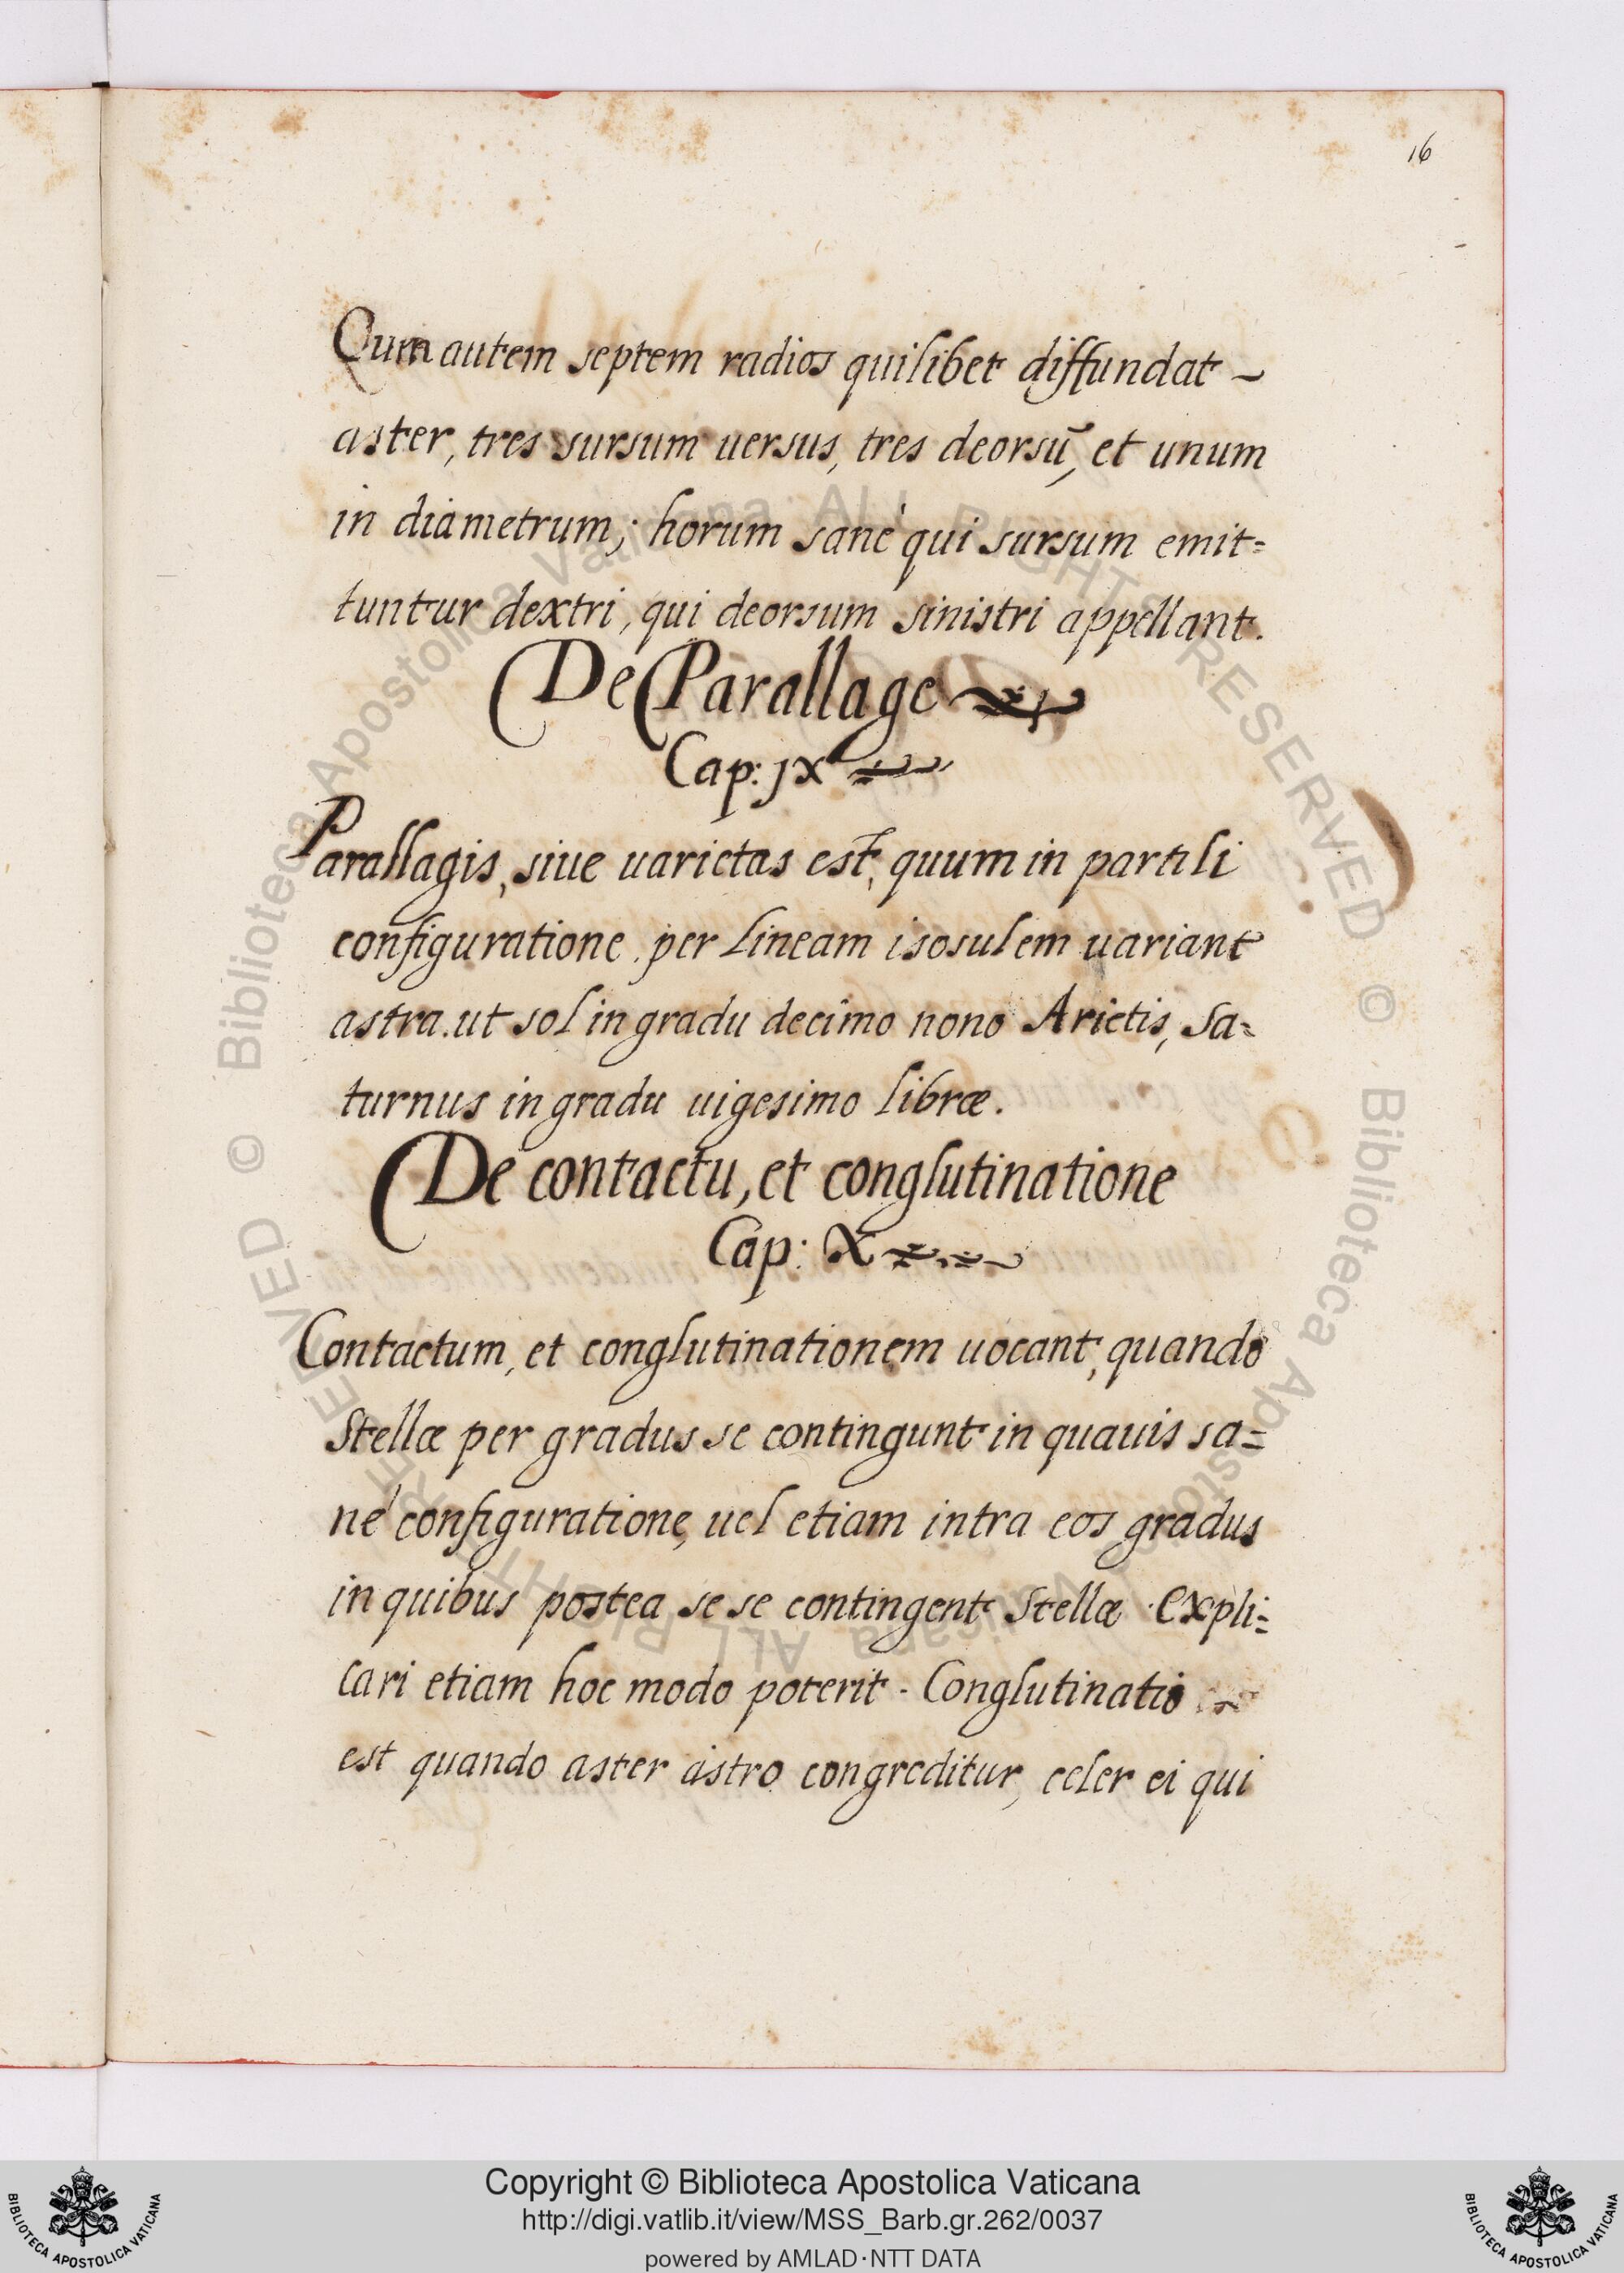 16
Qum autem septem radios quilibet diffundat ~
aster, tres sursum uersus, tres deorsũ, et unum
in diametrum; horum sanè qui sursum emit=
tuntur dextri, qui deorsum sinistri appellant.
De Parallage
Cap: jx
Parallagis, siue uarietas est, quum in partili
configuratione per lineam isosulem uariant
astra. ut sol in gradu decimo nono Arietis, Sa=
turnus in gradu uigesimo libræ.
De contactu, et conglutinatione
Cap: X
Contactum, et conglutinationem uocant, quando
Stellæ per gradus se contingunt in quauis sa=
nè configuratione, uel etiam intra eos gradus
in quibus postea se se contingent Stellæ. Expli=
cari etiam hoc modo poterit. Conglutinatio
est quando aster astro congreditur, celer ei qui
© Biblioteca Apostolica Vaticana ALL RIGHTS RESERVED © Biblioteca Apostolica Vaticana ALL RIGHTS RESERVED
Copyright © Biblioteca Apostolica Vaticana
http://digi.vatlib.it/view/MSS_Barb.gr.262/0037
powered by AMLAD·NTT DATA
BIBLIOTECA APOSTOLICA VATICANA
BIBLIOTECA APOSTOLICA VATICANA